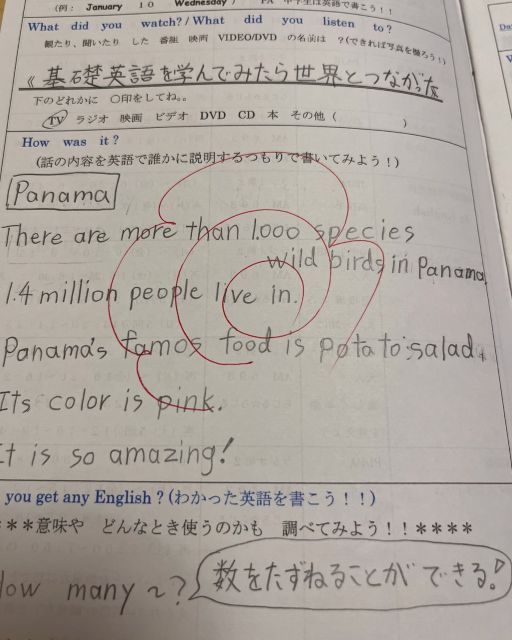 (例: January 10 Wednesday)
What did you watch? / What did you listen to?
観たり、聞いたり した 番組 映画 VIDEO/DVD の名前は ?(できれば写真を貼ろう!)
《基礎英語を学んでみたら世界とつながった
下のどれかに ○印をしてね。。
TV ラジオ 映画 ビデオ DVD CD 本 その他 ( )
How was it?
(話の内容を英語で誰かに説明するつもりで書いてみよう!)
Panama
There are more than 1,000 species
wild birds in Panama
1.4 million people live in.
Panama's famos food is potato salad.
Its color is pink.
It is so amazing!
you get any English? (わかった英語を書こう!!)
***意味や どんなとき使うのかも 調べてみよう!!****
How many ~? 数をたずねることができる!